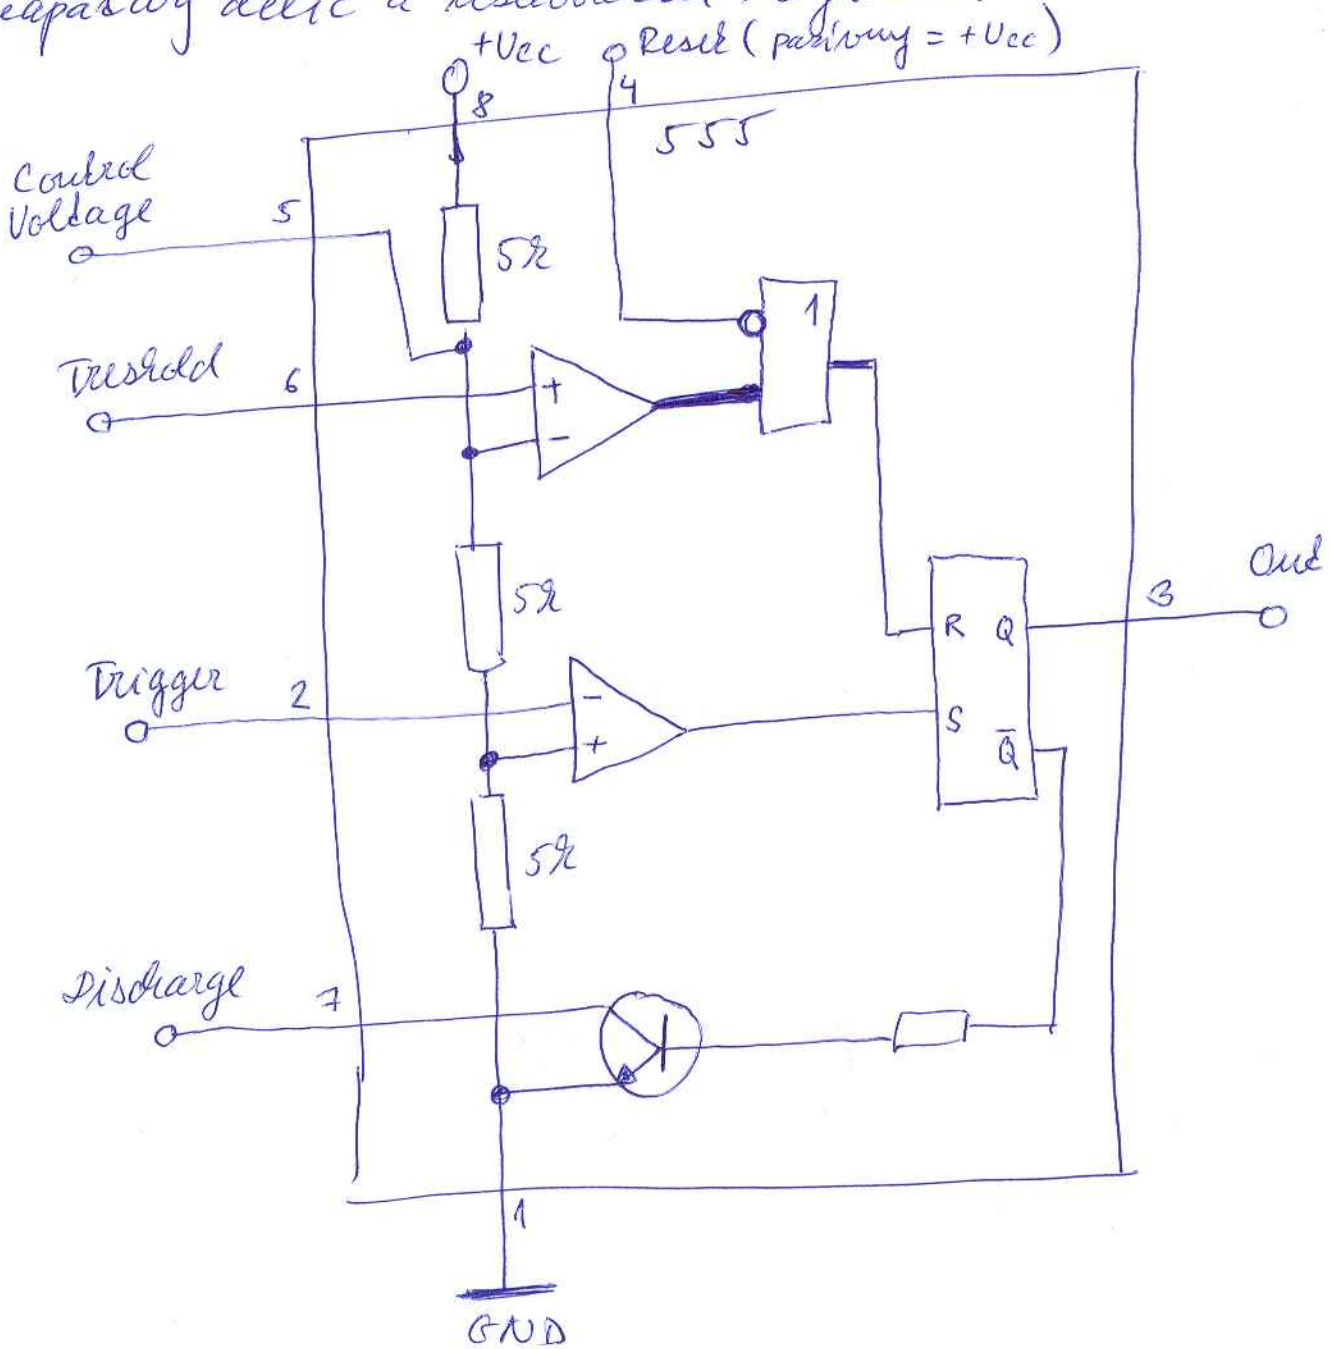 +Ucc
Reset ( pasivny = +Ucc)
8
4
555
Control
Voltage
5
5k
1
Treshold
6
+
-
5k
Out
3
R Q
Trigger
2
-
S
+
Q̅
5k
Discharge
7
1
GND